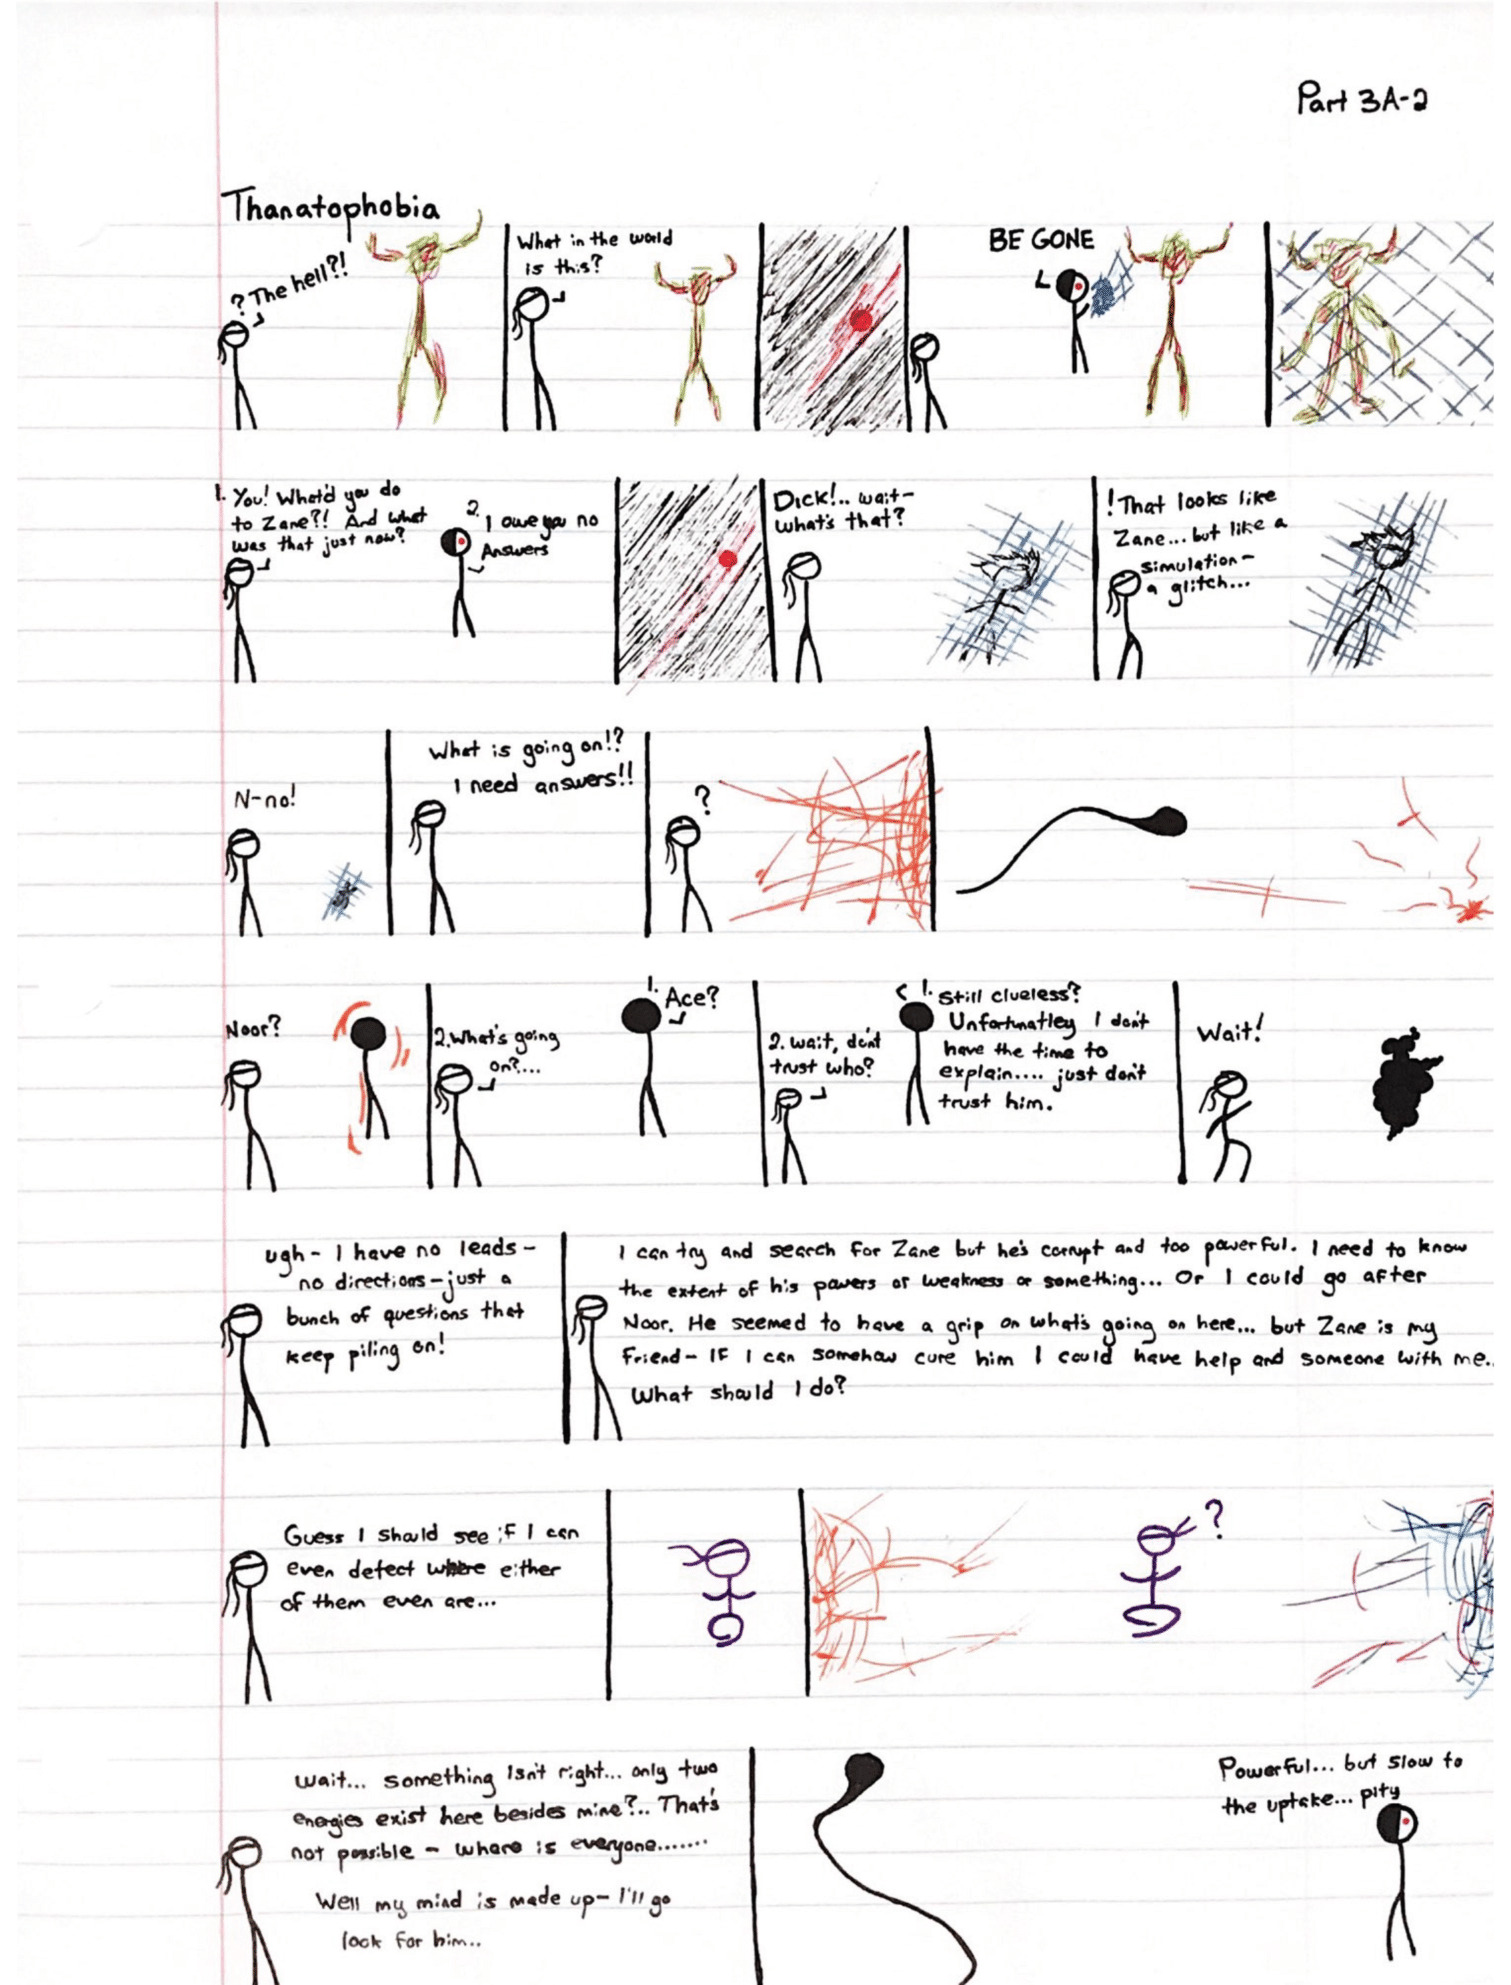 Part 3A-2
Thanatophobia
? The hell?!
What in the world
is this?
BE GONE
1. You! What'd you do
to Zane?! And what
was that just now?
2. I owe you no
Answers
Dick!.. wait-
what's that?
! That looks like
Zane... but like a
simulation-
a glitch...
N-no!
What is going on!?
I need answers!!
?
Noor?
1. Ace?
2. What's going
on?....
1. Still clueless?
Unfortunatley I don't
have the time to
explain.... just don't
trust him.
2. wait, don't
trust who?
Wait!
ugh- I have no leads-
no directions-just a
bunch of questions that
keep piling on!
I can try and search for Zane but he's corrupt and too powerful. I need to know
the extent of his powers or weakness or something... Or I could go after
Noor. He seemed to have a grip on what's going on here... but Zane is my
friend- IF I can somehow cure him I could have help and someone with me..
What should I do?
Guess I should see if I can
even detect where either
of them even are...
?
Wait... something isn't right... only two
energies exist here besides mine?.. That's
not possible - where is everyone.......
Well my mind is made up- I'll go
look for him..
Powerful... but slow to
the uptake... pity